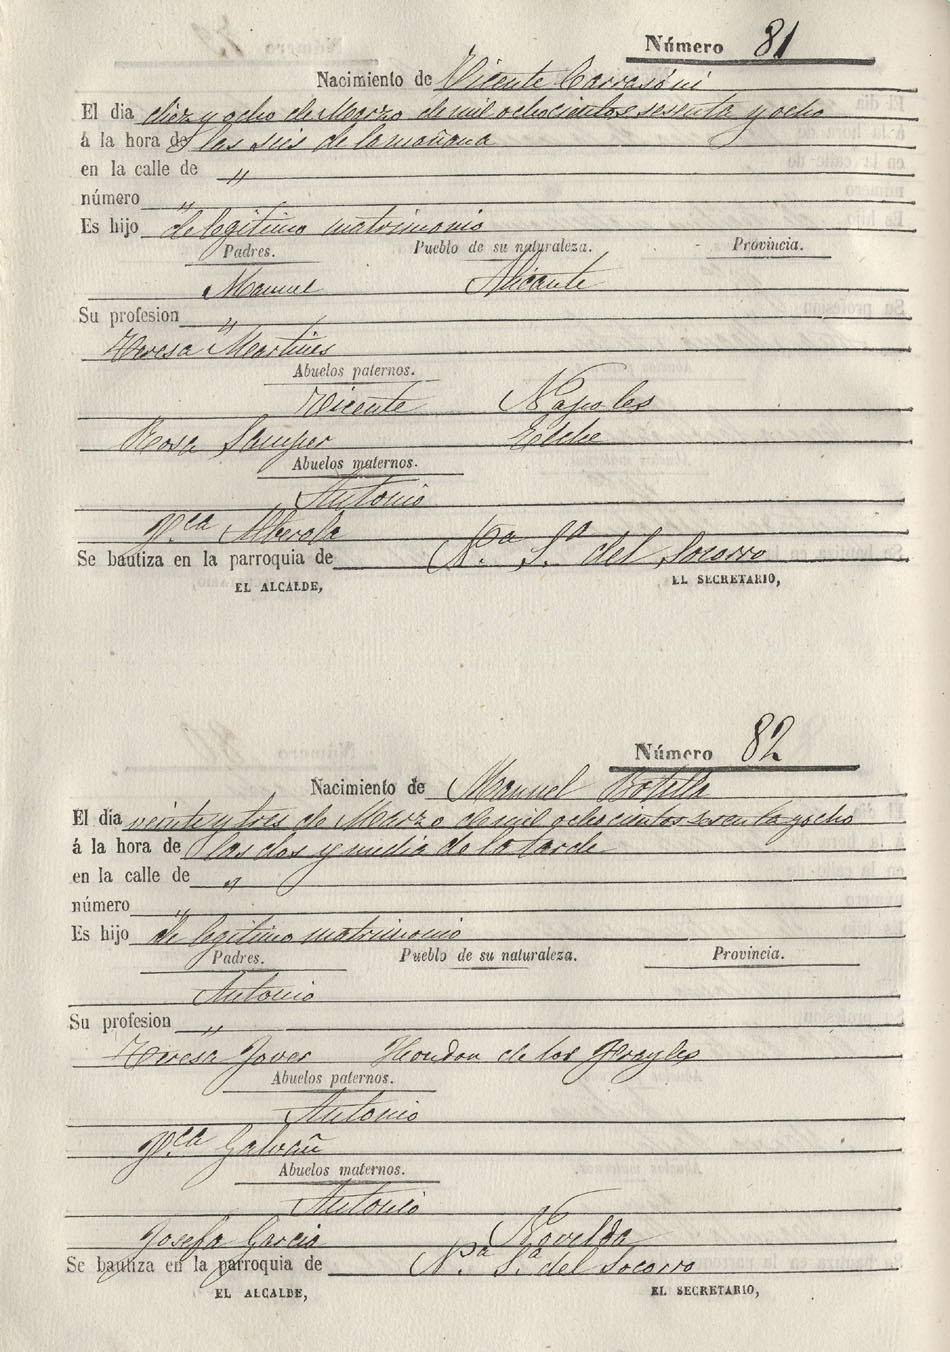 Número 81
Nacimiento de Vicente Carrasóni
El dia diez y ocho de Marzo de mil ochocientos sesenta y ocho
á la hora de las seis de la mañana
en la calle de "
número "
Es hijo de legitimo matrimonio
Padres. Pueblo de su naturaleza. Provincia.
Manuel Alicante
Su profesion "
Teresa Martines
Abuelos paternos.
Vicente Napoles
Rosa Samper Elche
Abuelos maternos.
Antonio
Fca Alberola
Se bautiza en la parroquia de Na. Sa. del Socorro
EL ALCALDE, EL SECRETARIO,
Número 82
Nacimiento de Manuel Botella
El día veinte y tres de Marzo de mil ochocientos sesenta y ocho
á la hora de las dos y media de la tarde
en la calle de "
número "
Es hijo de legitimo matrimonio
Padres. Pueblo de su naturaleza. Provincia.
Antonio
Su profesion "
Teresa Jover Hondon de los Frayles
Abuelos paternos.
Antonio
Fca Galvañ
Abuelos maternos.
Antonio
Josefa Garcia Novelda
Se bautiza en la parroquia de Na. Sa. del Socorro
EL ALCALDE, EL SECRETARIO,